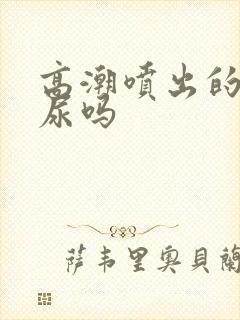 高潮噴出的
尿吗
萨韦里奥貝蘭